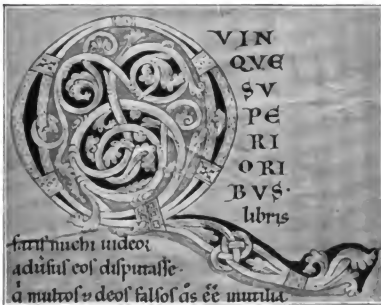 Q
VIN
QVE
SV
PE
RI
ORI
BVS·
libris
satis michi uideor
adusus eos disputasse·
q multos & deos falsos qs ēē inutilia